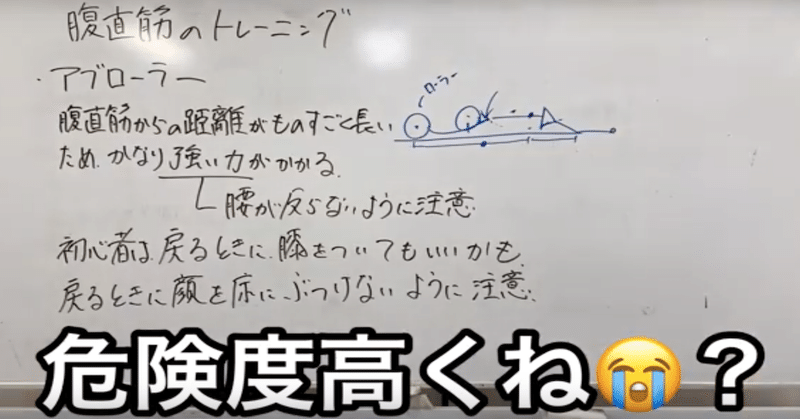 腹直筋のトレーニング
・アブローラー
ローラー
腹直筋からの距離がものすごく長い
ため、かなり強い力がかかる。
腰が反らないように注意
初心者は、戻るときに、膝をついてもいいかも
戻るときに顔を床にぶつけないように注意
危険度高くね😭？